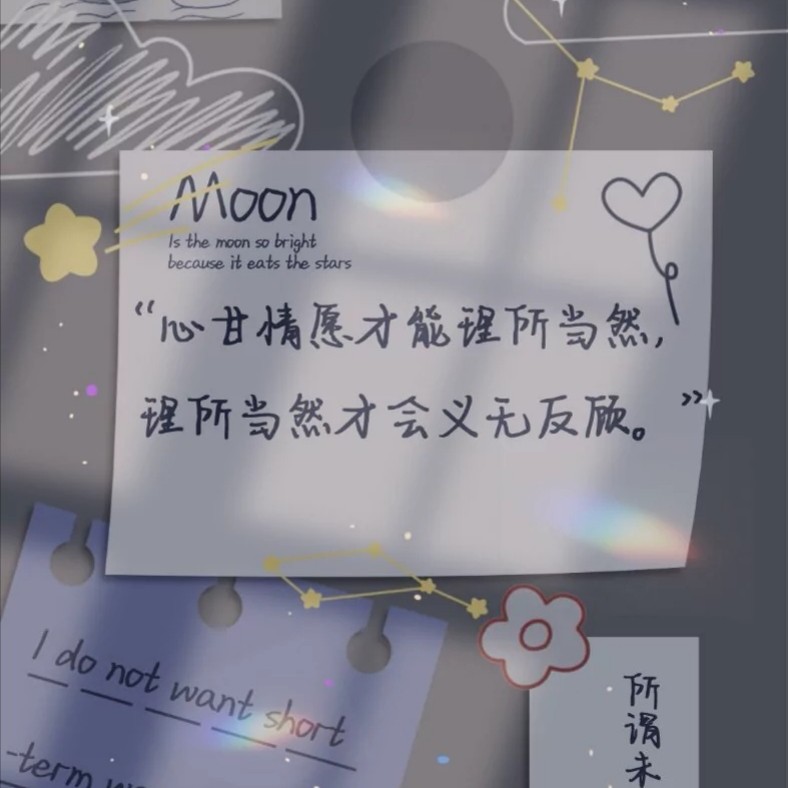 Moon
Is the moon so bright
because it eats the stars
“心甘情愿才能理所当然,
理所当然才会义无反顾。”
I do not want short
-term
所谓未